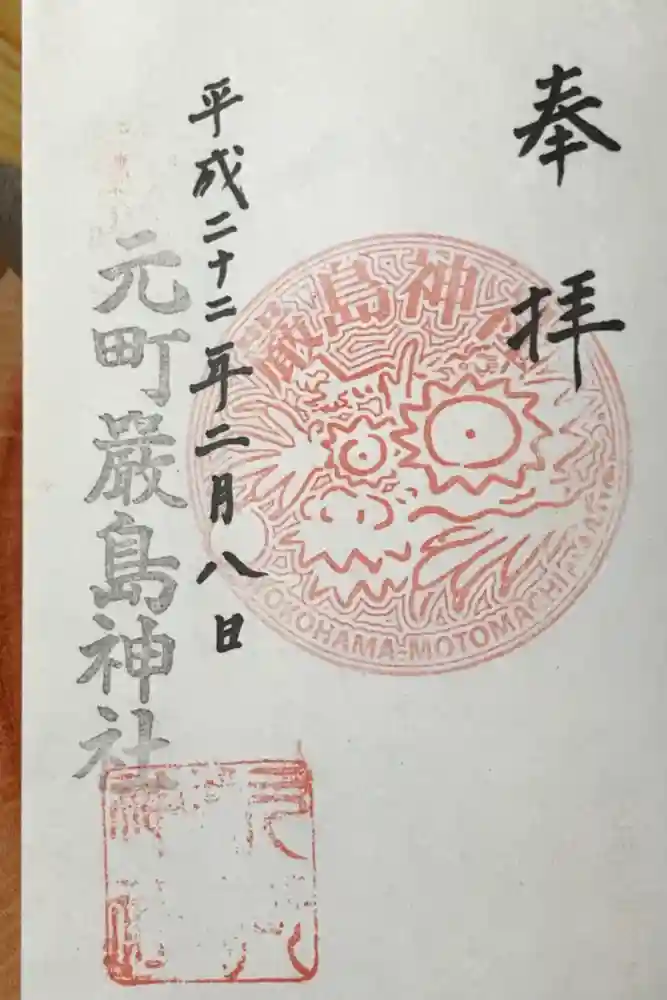 奉拝
厳島神社
YOKOHAMA-MOTOMACHI
平成二十二年二月八日
元町厳島神社